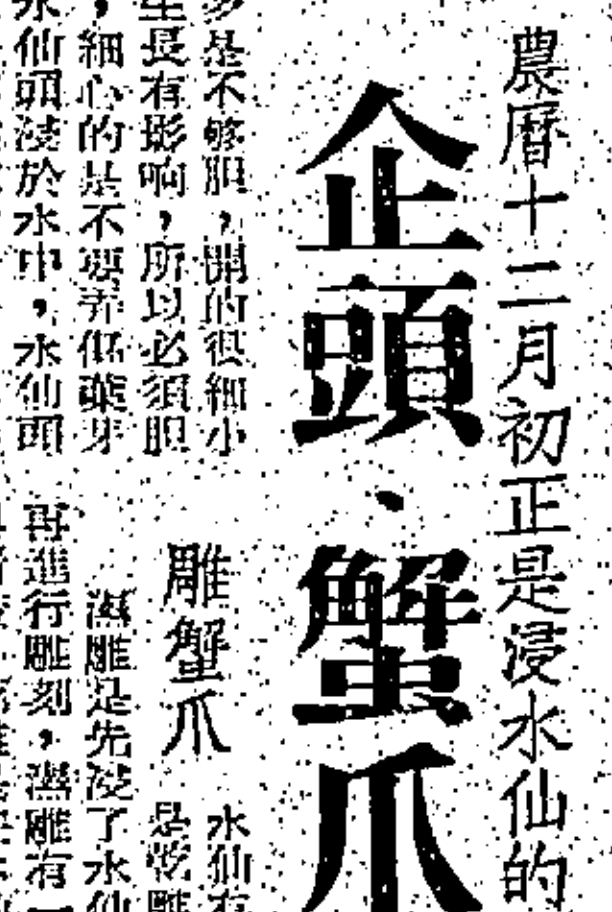 農曆十二月初正是浸水仙的
企頭、蟹爪
是不够胆，開的很細小
長有影响，所以必須胆
，細心的是不要弄傷葉牙
水仙頭浸於水中，水仙頭
雕蟹爪
水仙有
是乾雕
濕雕是先浸了水仙
再進行雕刻，濕雕有一